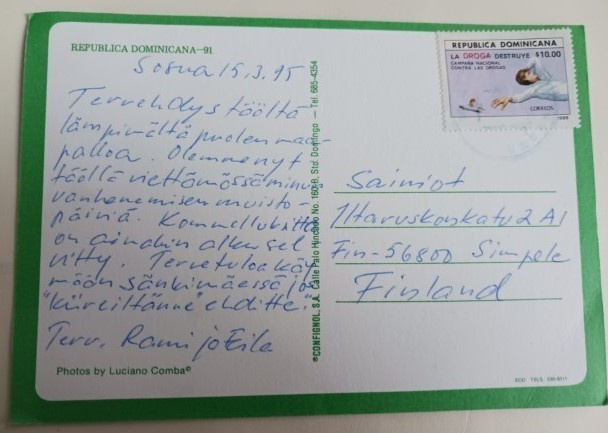 REPUBLICA DOMINICANA—91
Sosua 15.3.95
Tervehdys täältä
lämpimältä puolen maa-
palloa. Olemme nyt
täällä viettämässä minun
vanhenemisen muisto-
päiviä. Kommelluksitta
on ainakin alku sel
vitty. Tervetuloa käy
mään sänkimäessä jos
"kiireiltänne" ehditte.
Terv. Rami ja Eila
Photos by Luciano Comba©
©CONFIGNOL, S.A. Calle Palo Hincado No. 160-B, Sto. Domingo — Tel. 685-4354
REPUBLICA DOMINICANA
LA DROGA DESTRUYE $10.00
CAMPAÑA NACIONAL
CONTRA LAS DROGAS
CORREOS
Sainiot
Iltaruskonkatu 2 A1
Fin-56800 Simpele
Finland